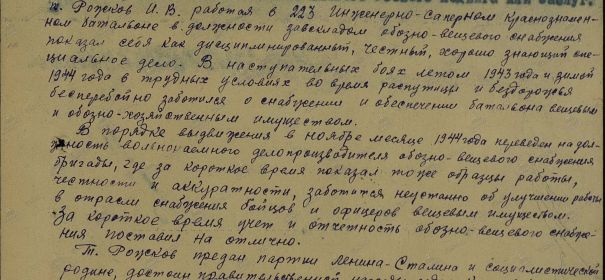 т. Рожков И.В. работая в 223 Инженерно-Саперном Краснознамен-
ном батальоне в должности завскладом обозно-вещевого снабжения
показал себя как дисциплинированный, честный, хорошо знающий спе-
циальное дело. В наступательных боях летом 1943 года и зимой
1944 года в трудных условиях во время распутицы и бездорожья
бесперебойно заботился о снабжении и обеспечении батальона вещевым
и обозно-хозяйственным имуществом.
В порядке выдвижения в ноябре месяце 1944 года переведен на дол-
жность вольнонаемного делопроизводителя обозно-вещевого снабжения
бригады, где за короткое время показал тоже образцы работы,
честности и аккуратности, заботится неустанно об улучшении работы
в отрасли снабжения бойцов и офицеров вещевым имуществом.
За короткое время учет и отчетность обозно-вещевого снабже-
ния поставил на отлично.
Т. Рожков предан партии Ленина-Сталина и социалистической
родине, достоин правительственной